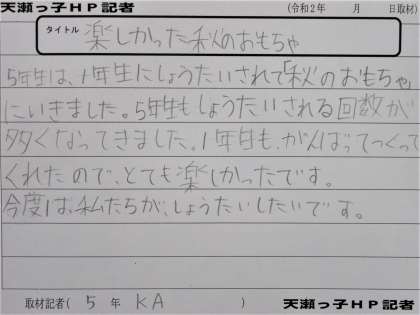 天瀬っ子HP記者 (令和2年 月 日取材)
タイトル 楽しかった秋のおもちゃ
5年生は、1年生にしょうたいされて「秋のおもちゃ
にいきました。5年生もしょうたいされる回数が
多くなってきました。1年生も、がんばってつくって
くれたので、とても楽しかったです。
今度は、私たちが、しょうたいしたいです。
取材記者( 5 年 KA )
天瀬っ子HP記者